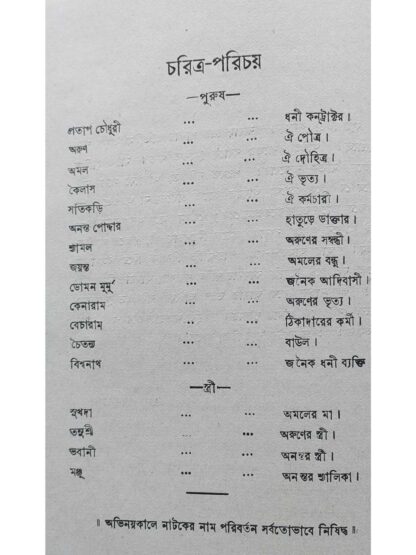 চরিত্র-পরিচয়
—পুরুষ—
প্রতাপ চৌধুরী ... ... ধনী কন্ট্রাক্টর।
অরুণ ... ... ঐ পৌত্র।
অমল ... ... ঐ দৌহিত্র।
কৈলাস ... ... ঐ ভৃত্য।
সাতকড়ি ... ... ঐ কর্মচারী।
অনন্ত পোদ্দার ... ... হাতুড়ে ডাক্তার।
শ্যামল ... ... অরুণের সম্বন্ধী।
জয়ন্ত ... ... অমলের বন্ধু।
ডোমন মুর্মু ... ... জনৈক আদিবাসী।
কেনারাম ... ... অরুণের ভৃত্য।
বেচারাম ... ... ঠিকাদারের কর্মী।
চৈতন্য ... ... বাউল।
বিশ্বনাথ ... ... জনৈক ধনী ব্যক্তি
—স্ত্রী—
সুখদা ... ... অমলের মা।
তনুশ্রী ... ... অরুণের স্ত্রী।
ভবানী ... ... অনন্তর স্ত্রী।
মঞ্জু ... ... অনন্তর শ্যালিকা।
॥ অভিনয়কালে নাটকের নাম পরিবর্তন সর্বতোভাবে নিষিদ্ধ ॥